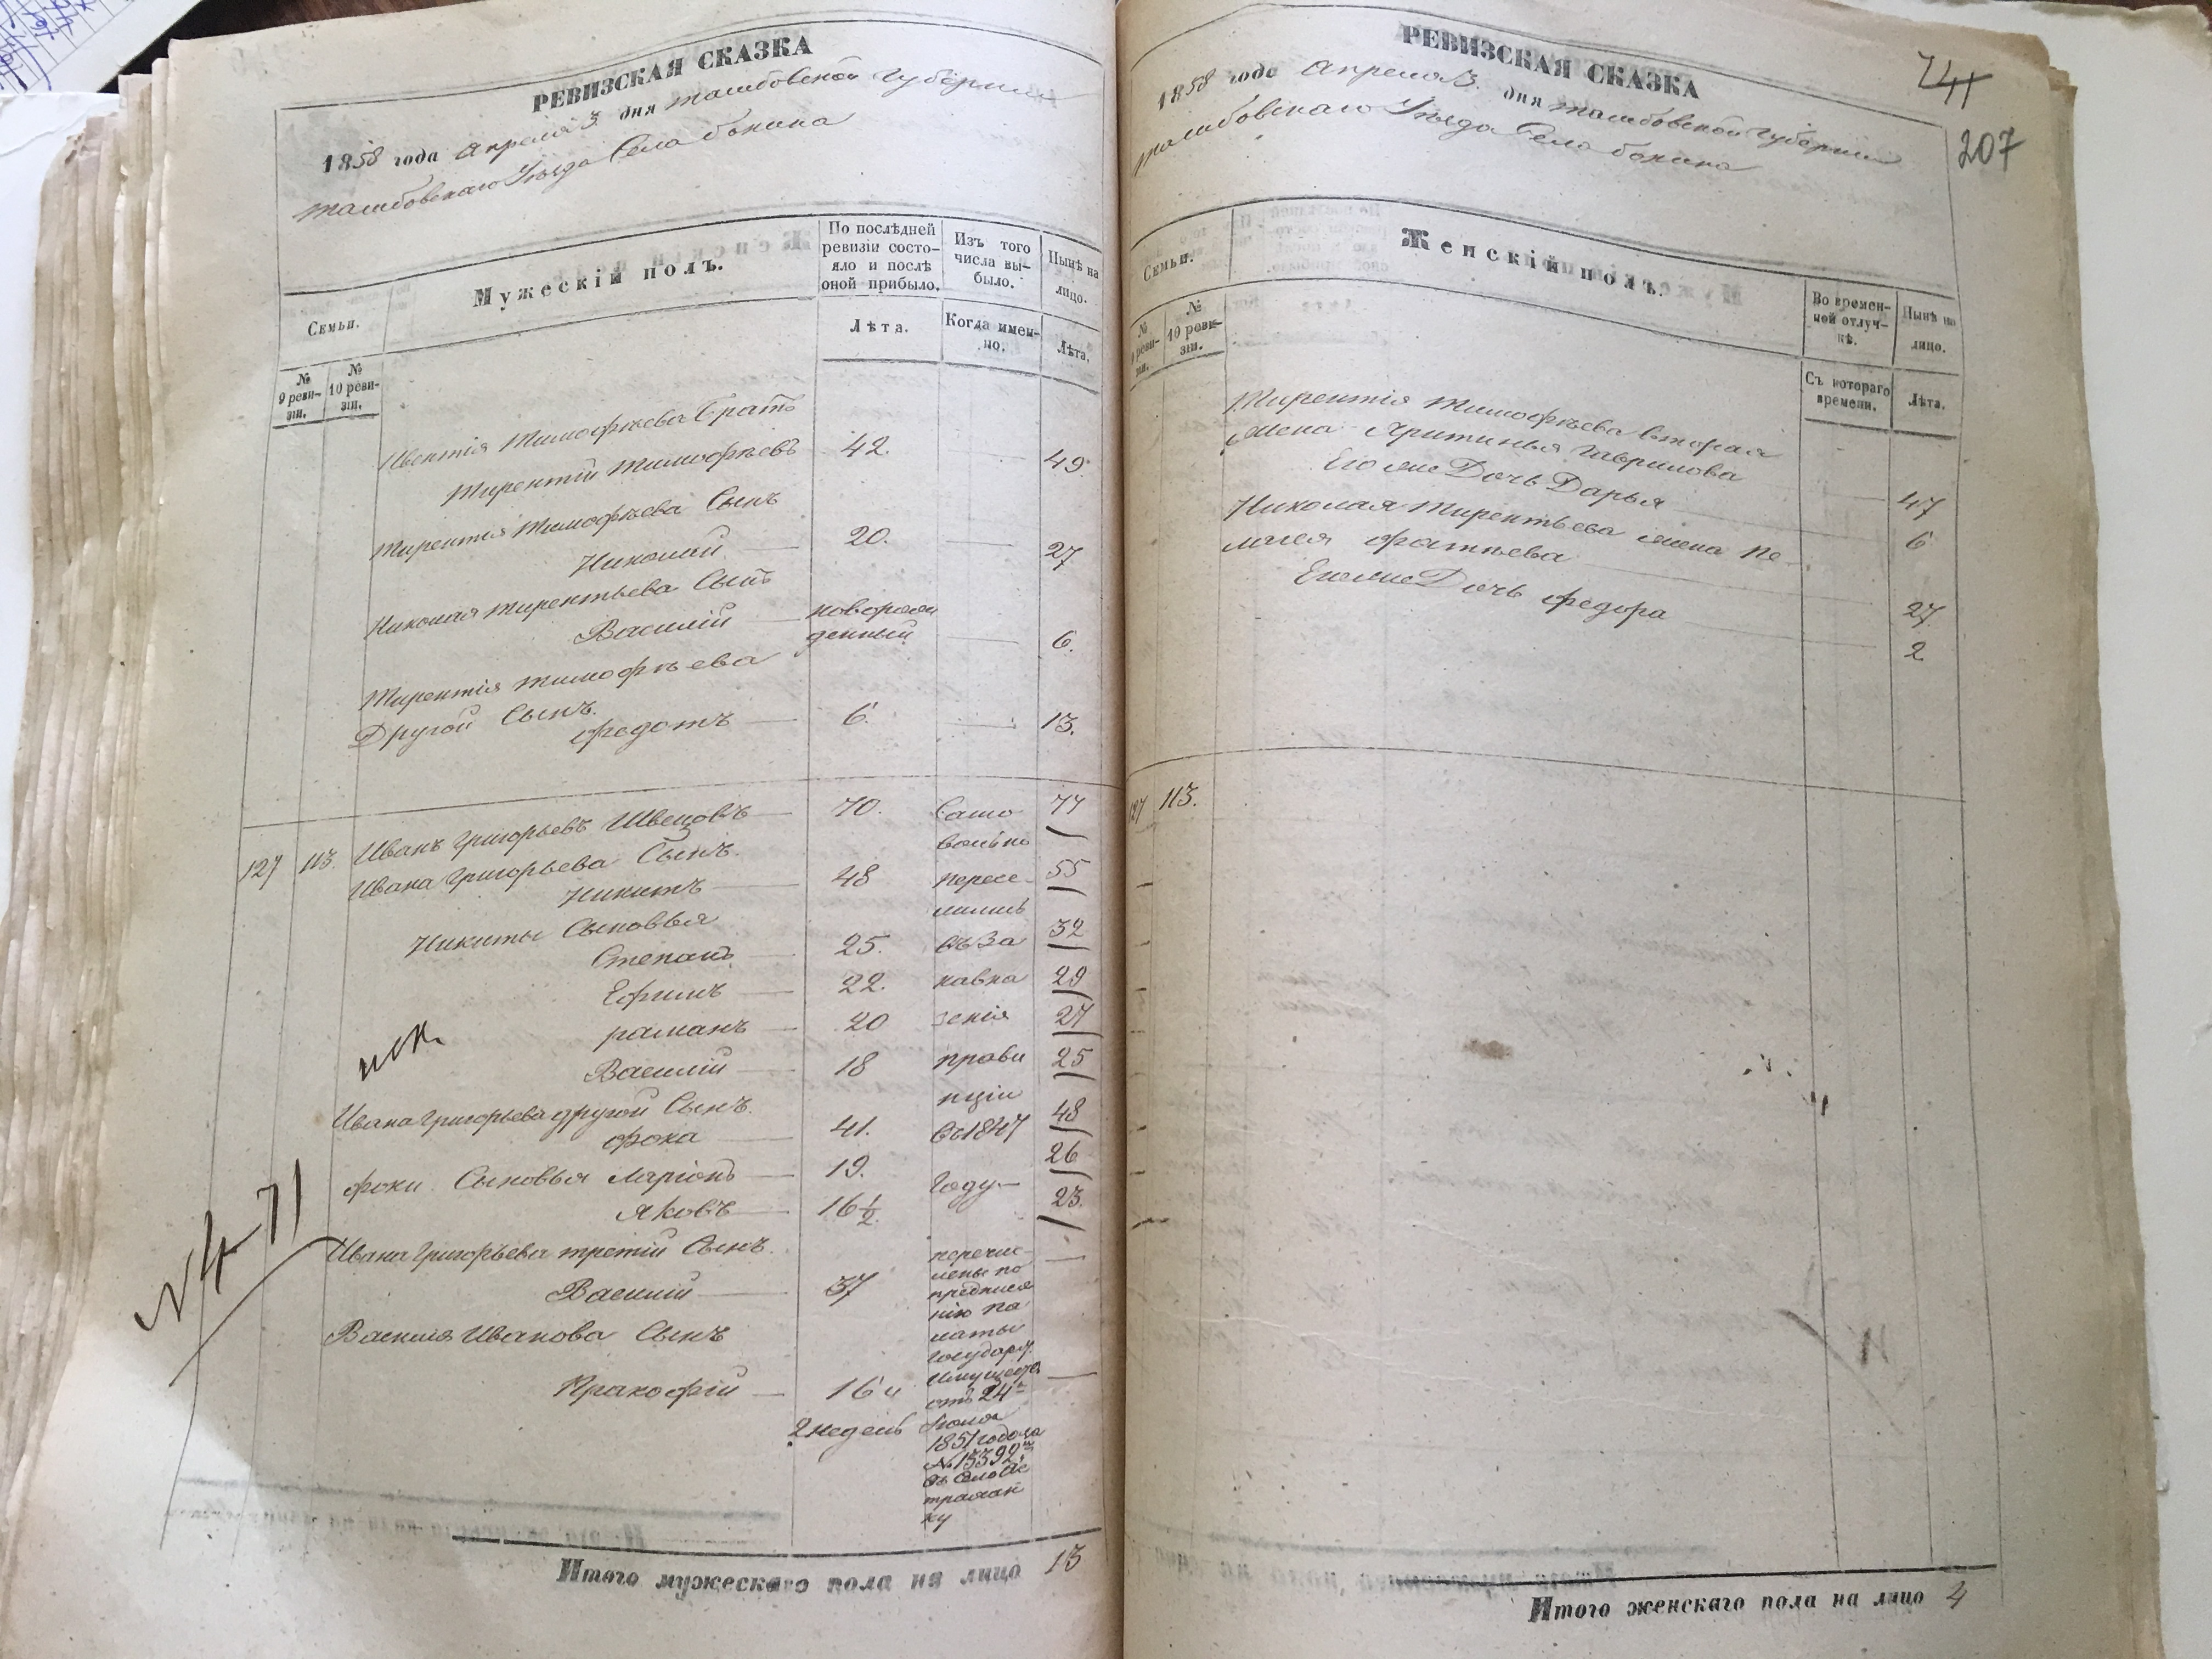 РЕВИЗСКАЯ СКАЗКА
1858 года Апреля 3 дня тамбовской Губернии
тамбовскаго Уѣзда Села бокина
Семьи.
Мужескій полъ.
По послѣдней ревизіи состояло и послѣ оной прибыло.
Изъ того числа выбыло.
Нынѣ на лицо.
№ 9 ревизіи.
№ 10 ревизіи.
Лѣта.
Когда именно.
Лѣта.
Тимофѣева братъ
Тирентій Тимофѣевъ 42. 49.
Тирентія Тимофѣева Сынъ
Николай 20. 27
Николая тирентьева Сынъ
Василій новорожденный 6.
Тирентія тимофѣева
Другой Сынъ.
федотъ 6. 13.
127 113. Иванъ Григорьевъ Швецовъ 70. Само 77
вольно
Ивана Григорьева Сынъ.
Никитъ 48 пересе- 55
лились
Никиты Сыновья
Степанъ 25. въ За 32
Ефимъ 22. кавка 29
раманъ 20 зскія 27
Василій 18 прови 25
нціи
Ивана Григорьева другой Сынъ.
фока 41. въ 1847 48
фоки Сыновья Ларіонъ 19. Году 26
Яковъ 16½ 23.
Ивана Григорьева третій Сынъ.
Василій 37 перечислены по
Василія Иванова Сынъ предписанію палаты
Пракофій 16 и 2 недель Государ. Имуществ
отъ 24
1851 года за
№ 13392
въ Село Ас
трахан
ку
N 4-71
Итого мужескаго пола на лицо 13
РЕВИЗСКАЯ СКАЗКА
741
207
1858 года Апреля 3. дня тамбовской Губернии
тамбовскаго Уѣзда Села бокина
Семьи.
Женскій полъ.
Во временной отлучкѣ.
Нынѣ на лицо.
№ 9 ревизіи.
№ 10 ревизіи.
Съ котораго времени.
Лѣта.
Тирентія тимофѣева вторая
жена Гаврилова 47
Его же Дочь Дарья 6
Николая Тирентьева жена Пе-
лагея фатѣева 27.
Его же Дочь федора 2
127 113.
Итого женскаго пола на лицо 4